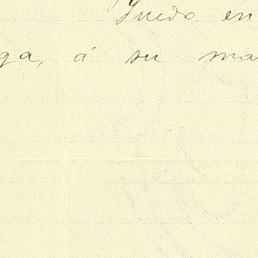 Quedo en
ga, á su ma